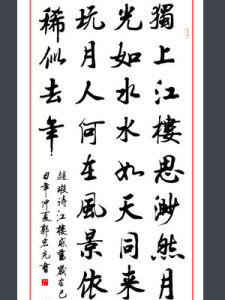 獨上江樓思渺然月
光如水水如天同来
玩月人何在風景依
稀似去年
趙嘏诗江樓感舊歲在己
丑年仲夏郭宏元書